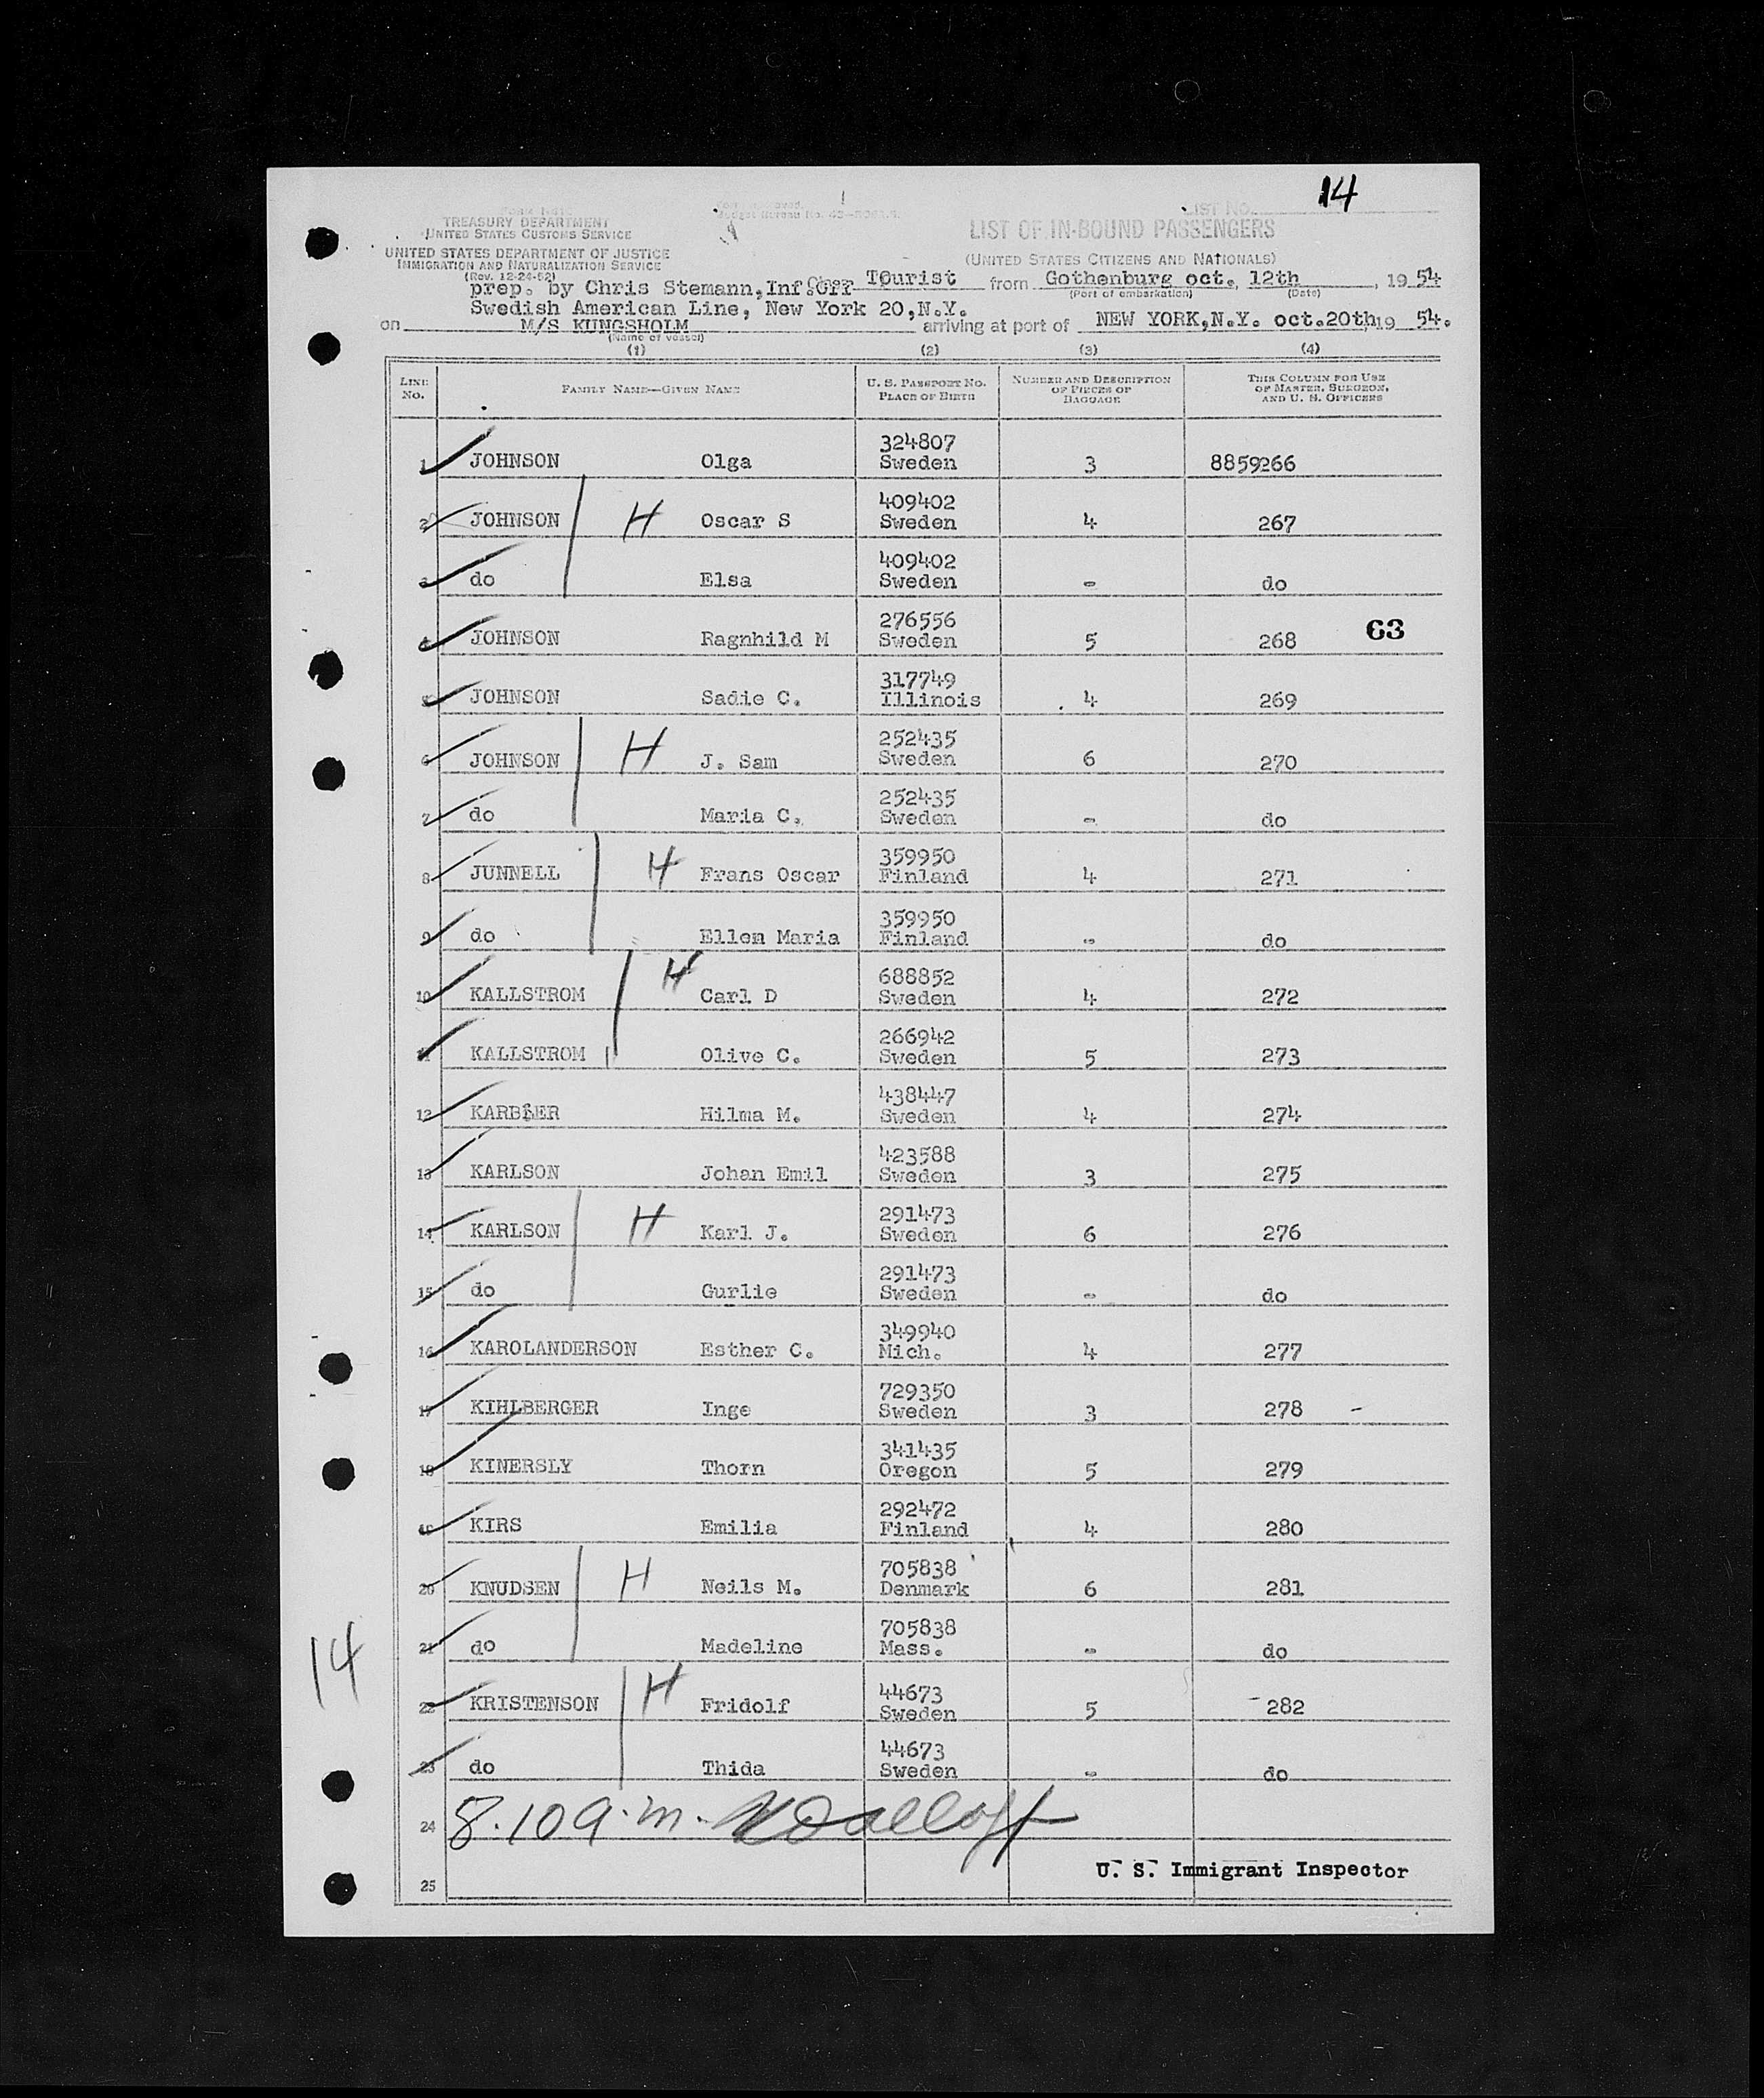 14
Form Approved.
Budget Bureau No. 43-
LIST No.
TREASURY DEPARTMENT
UNITED STATES CUSTOMS SERVICE
LIST OF IN-BOUND PASSENGERS
UNITED STATES DEPARTMENT OF JUSTICE
IMMIGRATION AND NATURALIZATION SERVICE
(UNITED STATES CITIZENS AND NATIONALS)
(Rev. 12-24-52)
prep. by Chris Stemann, Inf.Off Class Tourist from Gothenburg oct. 12th, 1954
(Port of embarkation) (Date)
Swedish American Line, New York 20,N.Y.
on M/S KUNGSHOLM arriving at port of NEW YORK,N.Y. oct.20th, 19 54.
(Name of vessel)
(1) (2) (3) (4)
LINE No. FAMILY NAME—GIVEN NAME U. S. PASSPORT NO. PLACE OF BIRTH NUMBER AND DESCRIPTION OF PIECES OF BAGGAGE THIS COLUMN FOR USE OF MASTER, SURGEON, AND U. S. OFFICERS
324807
1 JOHNSON Olga Sweden 3 8859266
409402
2 JOHNSON H Oscar S Sweden 4 267
409402
3 do Elsa Sweden - do
276556
4 JOHNSON Ragnhild M Sweden 5 268 63
317749
5 JOHNSON Sadie C. Illinois 4 269
252435
6 JOHNSON H J. Sam Sweden 6 270
252435
7 do Maria C. Sweden - do
359950
8 JUNNELL H Frans Oscar Finland 4 271
359950
9 do Ellen Maria Finland - do
688852
10 KALLSTROM H Carl D Sweden 4 272
266942
11 KALLSTROM Olive C. Sweden 5 273
438447
12 Hilma M. Sweden 4 274
423588
13 KARLSON Johan Emil Sweden 3 275
291473
14 KARLSON H Karl J. Sweden 6 276
291473
15 do Gurlie Sweden - do
349940
16 KAROLANDERSON Esther C. Mich. 4 277
729350
17 KIHLBERGER Inge Sweden 3 278 -
341435
18 KINERSLY Thorn Oregon 5 279
292472
19 KIRS Emilia Finland 4 280
705838
20 KNUDSEN H Neils M. Denmark 6 281
705838
21 do Madeline Mass. - do
14
44673
22 KRISTENSON H Fridolf Sweden 5 282
44673
23 do Thida Sweden - do
24 8.10 a.m.
U. S. Immigrant Inspector
25